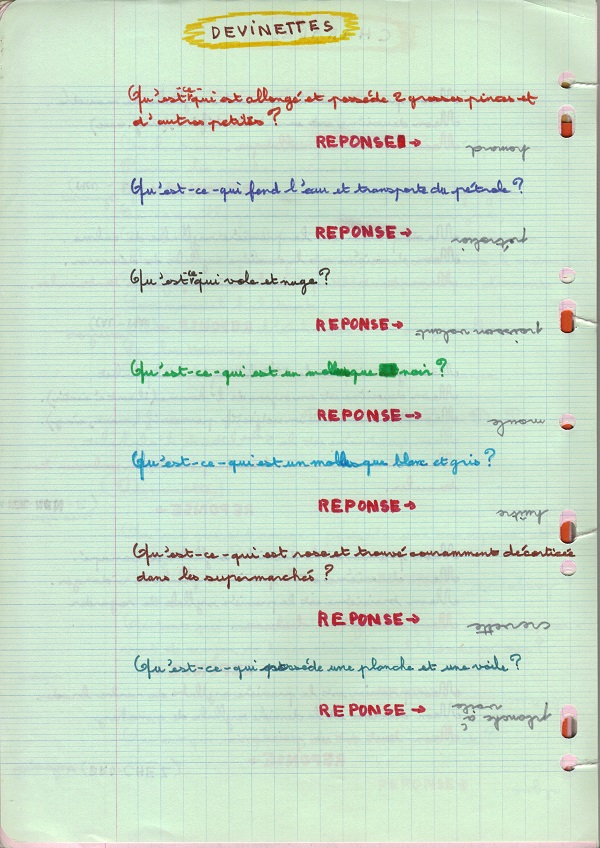 DEVINETTES
Qu'est-ce-qui est allongé et possède 2 grosses pinces et
d'autres petites ?
REPONSE → homard
Qu'est-ce-qui fend l'eau et transporte du pétrole ?
REPONSE → pétrolier
Qu'est-ce-qui vole et nage ?
REPONSE → poisson volant
Qu'est-ce-qui est un mollusque noir ?
REPONSE → moule
Qu'est-ce-qui est un mollusque blanc et gris ?
REPONSE → huître
Qu'est-ce-qui est rose et trouvé couramment décortiqué
dans les supermarchés ?
REPONSE → crevette
Qu'est-ce-qui possède une planche et une voile ?
REPONSE → planche à voile